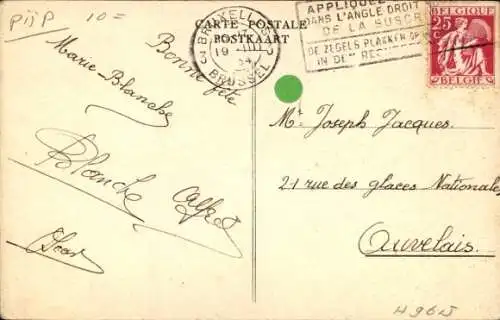 PijP 10=
CARTE POSTALE
POSTKAART
BRUXELLES
19 III 34
BRUSSEL
APPLIQUEZ
DANS L'ANGLE DROIT
DE LA SUSCR
DE ZEGELS PLAKKEN OP
IN DE REC
25 c
BELGIQUE
BELGIË
Bonne fête
Marie-Blanche
Blanche
Alfred
Mr. Joseph Jacques.
21 rue des glaces Nationales
Auvelais.
H965